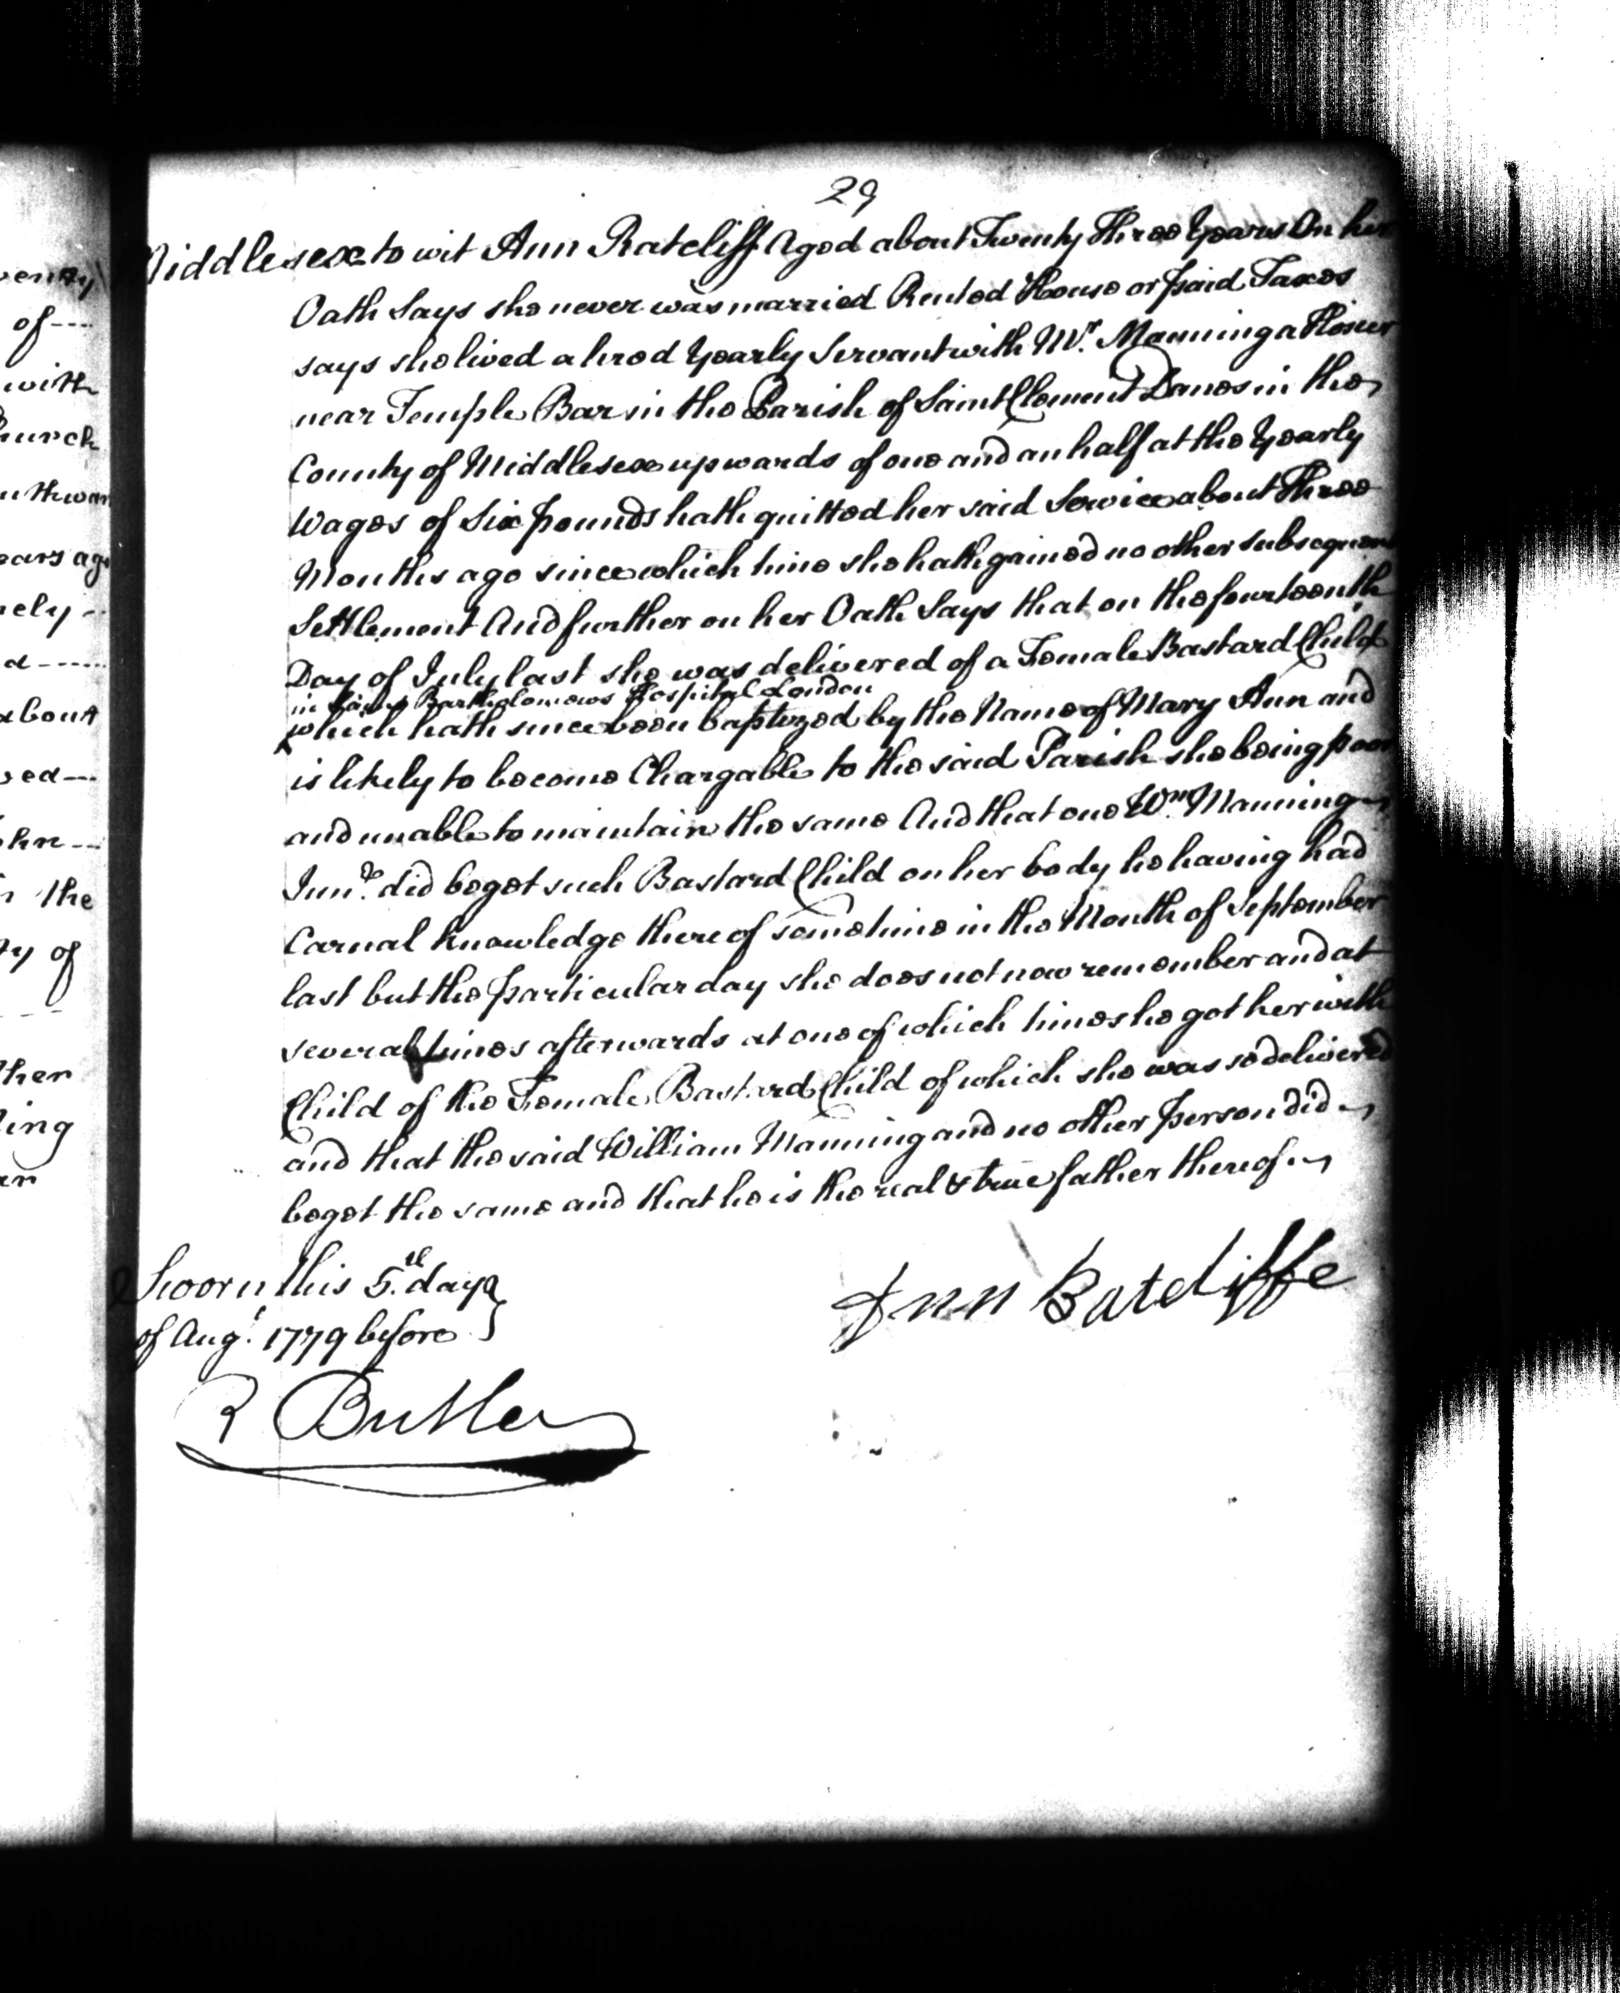 29
Middlesex to wit Ann Ratcliff Aged about Twenty Three Years On her
Oath Says she never was married Rented House or paid Taxes
says she lived a hired Yearly Servant with Mr. Manning a Hosier
near Temple Bar in the Parish of Saint Clement Danes in the
County of Middlesex upwards of one and an half at the Yearly
Wages of Six pounds hath quitted her said Service about Three
Months ago since which time she hath gained no other subsequent
Settlement And further on her Oath Says that on the fourteenth
Day of July last she was delivered of a Female Bastard Child
in Bartholomews Hospital London
which hath since been baptized by the Name of Mary Ann and
is likely to become Chargable to the said Parish she being poor
and unable to maintain the same And that one Wm. Manning
Junr. did beget such Bastard Child on her body he having had
Carnal knowledge there of sometime in the Month of September
last but the particular day she does not now remember and at
several times afterwards at one of which times he got her with
Child of the Female Bastard Child of which she was so delivered
and that the said William Manning and no other person did
beget the same and that he is the real & true father thereof
Sworn this 5th. day
of Augt. 1779 before
Ann Ratcliffe
R Butler
venty
of
with
hurch
uthwar
ears ago
ely
d
about
ved
the
ty of
ther
ing